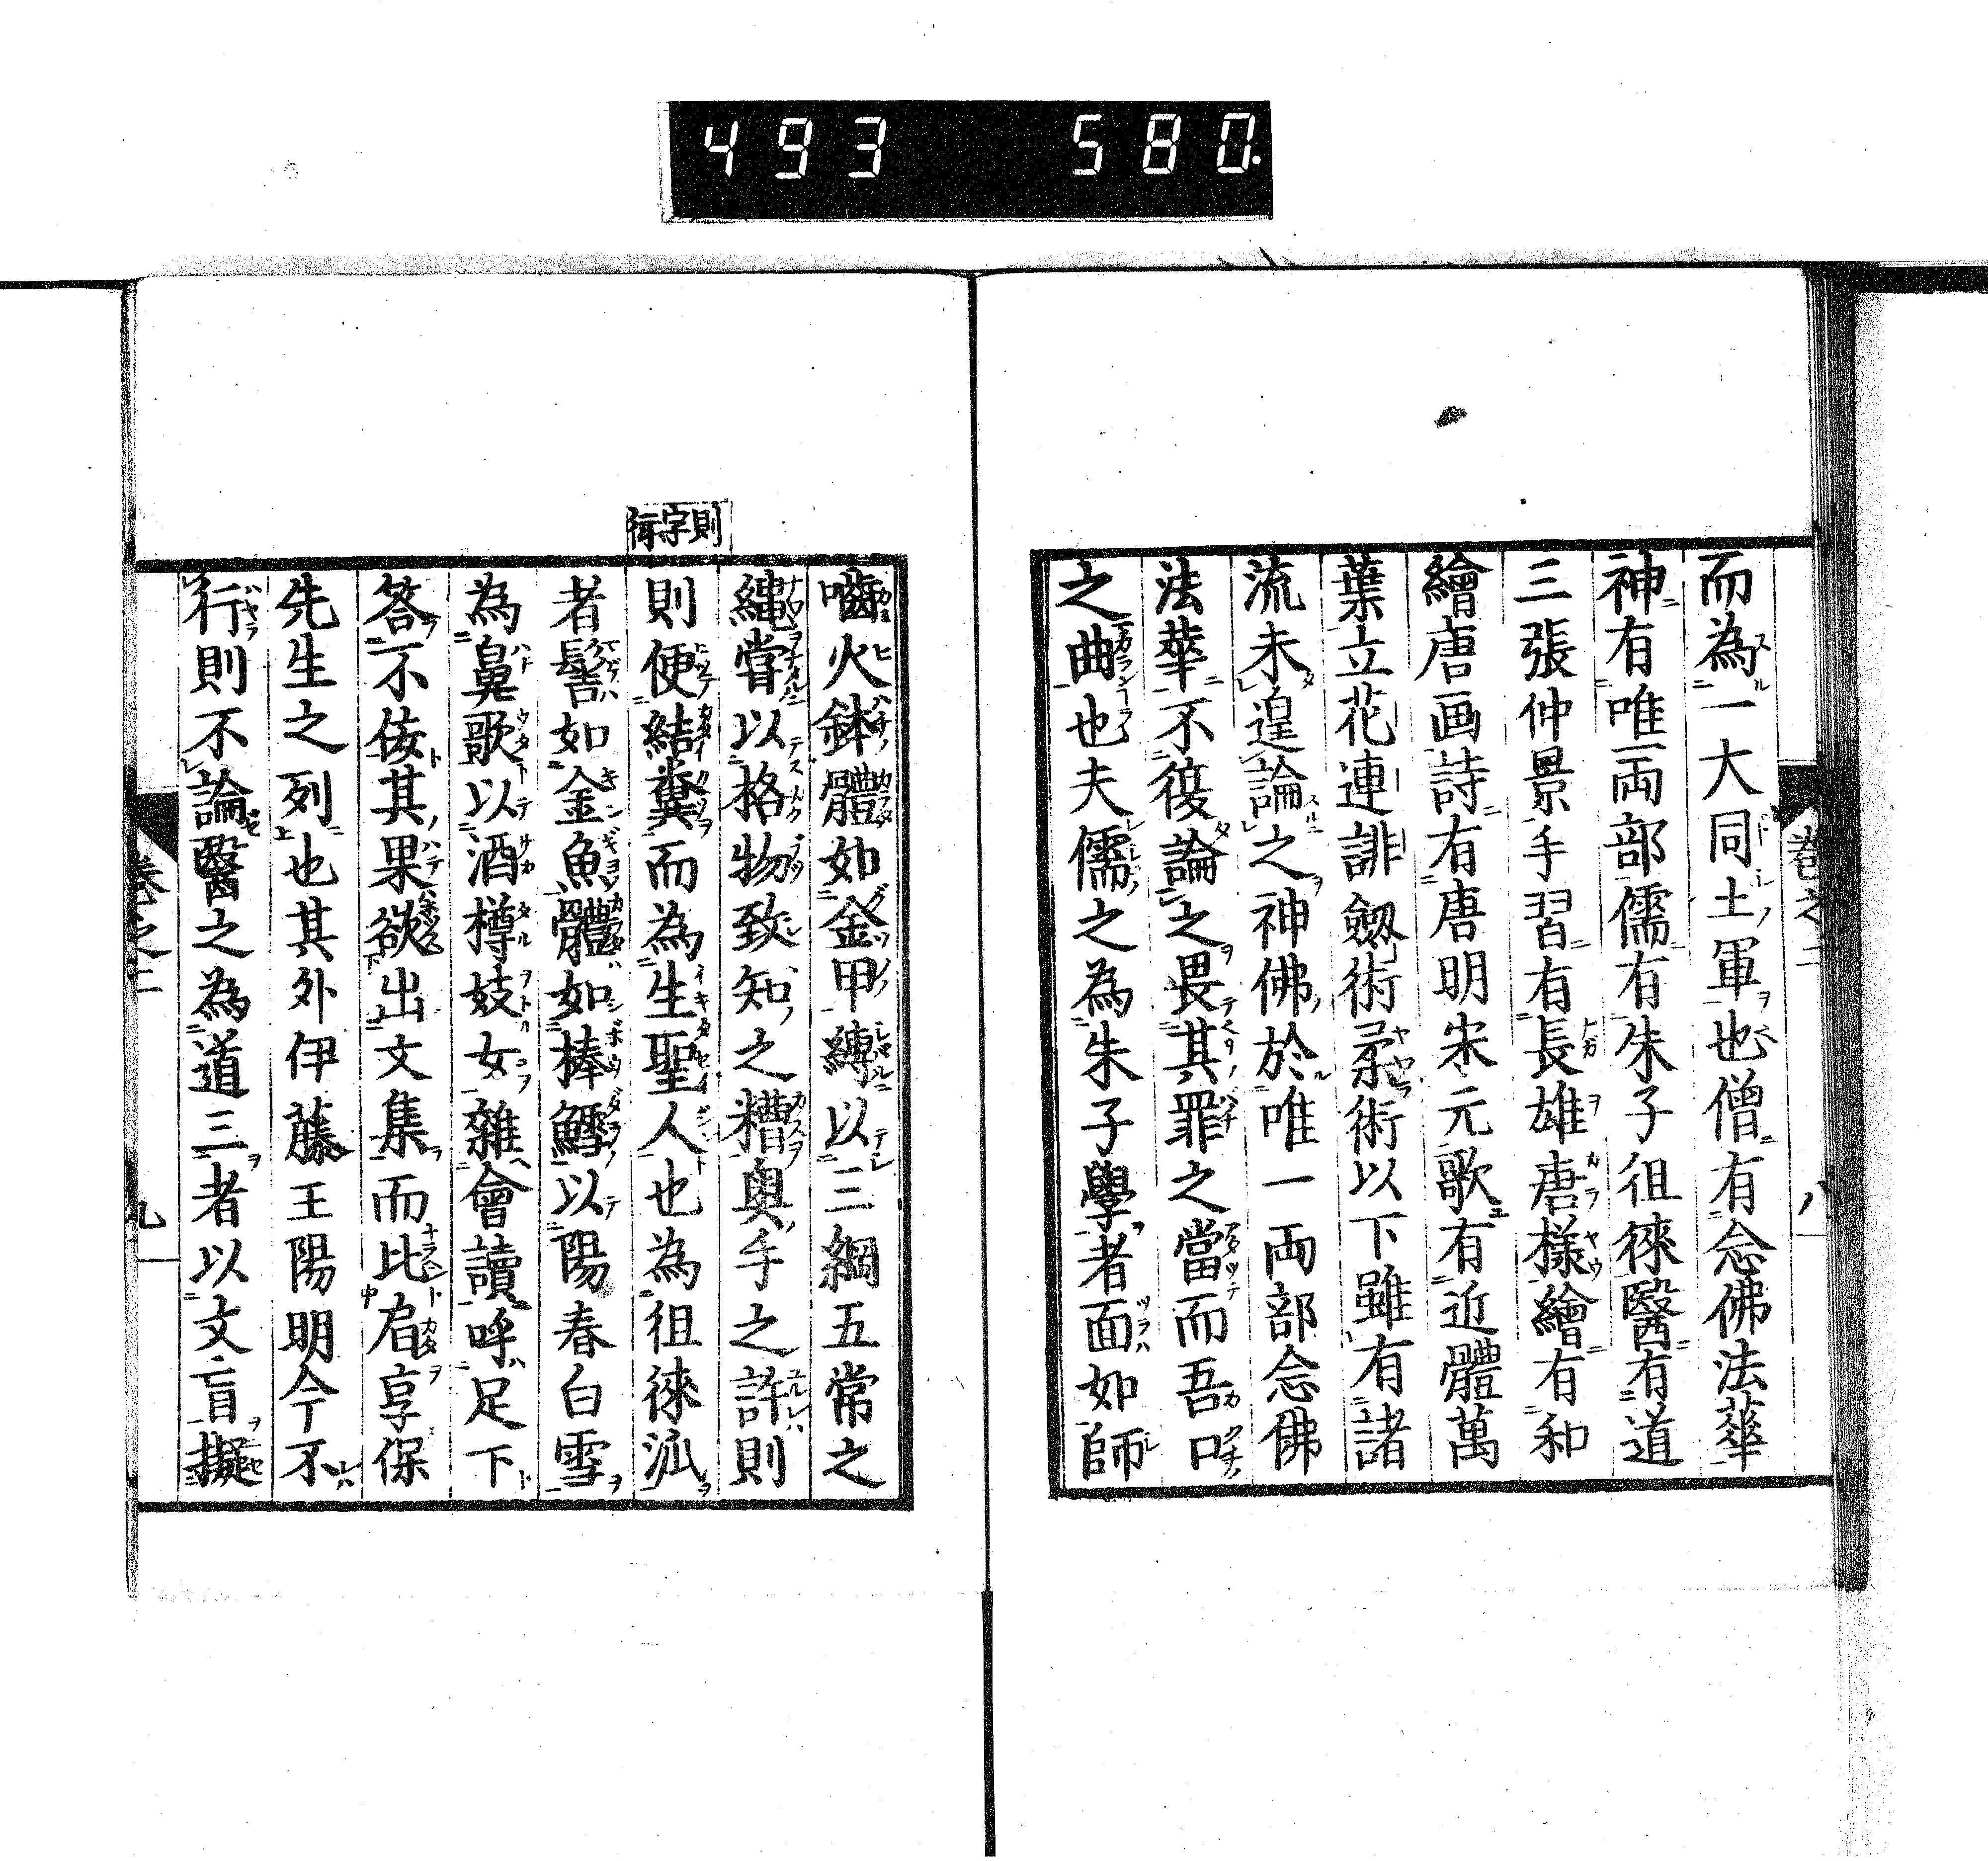 493 580.
卷之二
八
而為一大同士軍也僧有念佛法華
神有唯一両部儒有朱子徂徠醫有道
三張仲景手習有長雄唐樣繪有和
繪唐画詩有唐明宋元歌有近體萬
葉立花連誹劔術柔術以下雖有諸
流未遑論之神佛於唯一両部念佛
法華不復論之畏其罪之當而吾口
之曲也夫儒之為朱子學者面如師
則字衍
嚙火鉢體如金甲縛以三綱五常之
繩嘗以格物致知之糟與手之許則
則便結糞而為生聖人也為徂徠派
者髻如金魚體如棒鱈以陽春白雪
為鼻歌以酒樽妓女雜會讀呼足下
答不侫其果欲出文集而比肩享保
先生之列也其外伊藤王陽明今不
行則不論醫之為道三者以文盲擬
卷之二
九